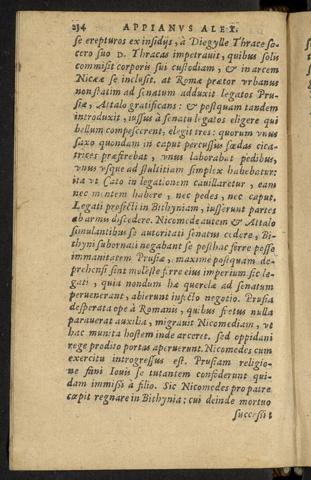 234 APPIANVS ALEX.
se erepturos ex insidijs, à Diegylle Thrace so-
cero suo D. Thracas impetrauit, quibus solis
commisit corporis sui custodiam, & in arcem
Nicææ se inclusit. at Romæ prætor vrbanus
non statim ad senatum adduxit legatos Pru-
siæ, Attalo gratificans: & postquam tandem
introduxit, iussus à senatu legatos eligere qui
bellum compescerent, elegit tres: quorum vnus
saxo quondam in caput percussus fœdas cica-
trices præferebat, vnus laborabat pedibus,
vnus vsque ad stultitiam simplex habebatur:
ita vt Cato in legationem cauillaretur, eam
nec mentem habere, nec pedes, nec caput.
Legati profecti in Bithyniam, iusserunt partes
ab armis discedere. Nicomede autem & Attalo
simulantibus se autoritati senatus cedere, Bi-
thyni subornati negabant se posthac ferre posse
immanitatem Prusiæ, maxime postquam de-
prehensi sint moleste ferre eius imperium. sic le-
gati, quia nondum hæ querelæ ad senatum
peruenerant, abierunt infecto negotio. Prusia
desperata ope à Romanis, quibus fretus nulla
parauerat auxilia, migrauit Nicomediam, vt
hac munita hostem inde arceret. sed oppidani
rege prodito portas aperuerunt. Nicomedes cum
exercitu introgressus est. Prusiam religio-
ne fani Iouis se tutantem confoderunt qui-
dam immissi à filio. Sic Nicomedes pro patre
cœpit regnare in Bithynia: cui deinde mortuo
successit